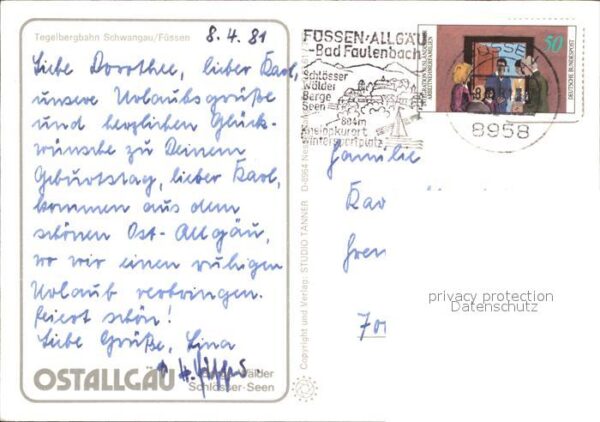 Tegelbergbahn Schwangau/Füssen
8.4.81
Liebe Dorothee, lieber Karl,
unsere Urlaubsgrüße
und herzlichen Glück-
wünsche zu Deinem
Geburtstag, lieber Karl,
kommen aus dem
schönen Ost-Allgäu,
wo wir einen ruhigen
Urlaub verbringen.
Feiert schön!
Liebe Grüße, Lina
OSTALLGÄU
Wälder
Schlösser-Seen
Copyright und Verlag: STUDIO TANNER D-8964
FÜSSEN/ALLGÄU
-Bad Faulenbach
Schlösser
Wälder
Berge
Seen
804m
Kneippkurort
Wintersportplatz
50
DEUTSCHE BUNDESPOST
INTEGRATION AUSLÄNDISCHER
ARBEITNEHMERFAMILIEN
8958
Familie
privacy protection
Datenschutz